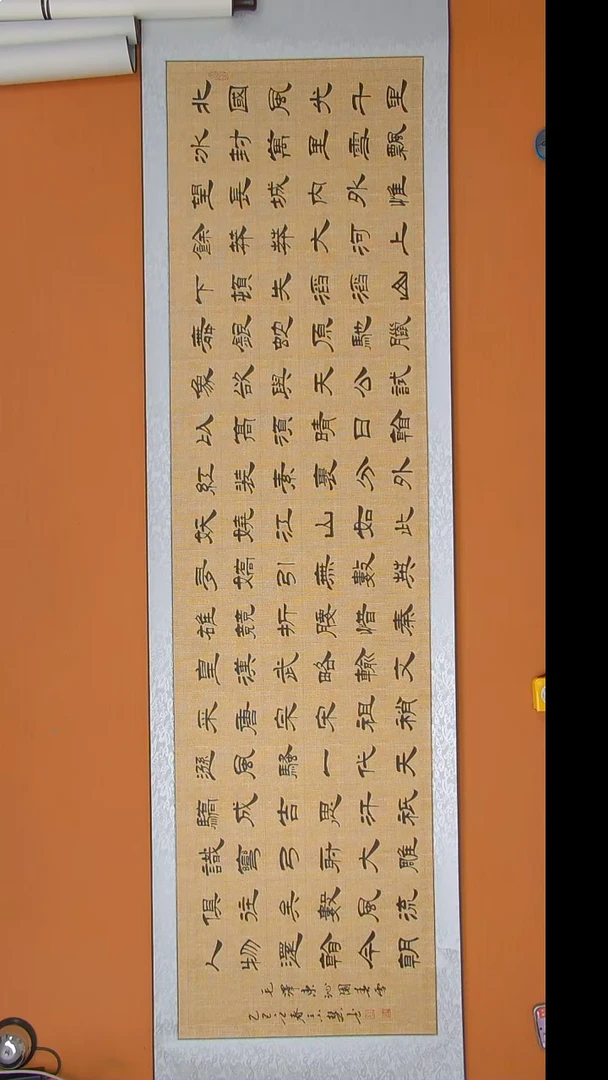 北國風光千里
冰封萬里雪飄
望長城內外惟
餘莽莽大河上
下頓失滔滔山
舞銀蛇原馳臘
象欲與天公試
比高須晴日看
紅裝素裹分外
妖嬈江山如此
多嬌引無數英
雄競折腰惜秦
皇漢武略輸文
采唐宗宋祖稍
遜風騷一代天
驕成吉思汗祇
識彎弓射大雕
俱往矣數風流
人物還看今朝
毛澤東沁園春雪
乙巳之春